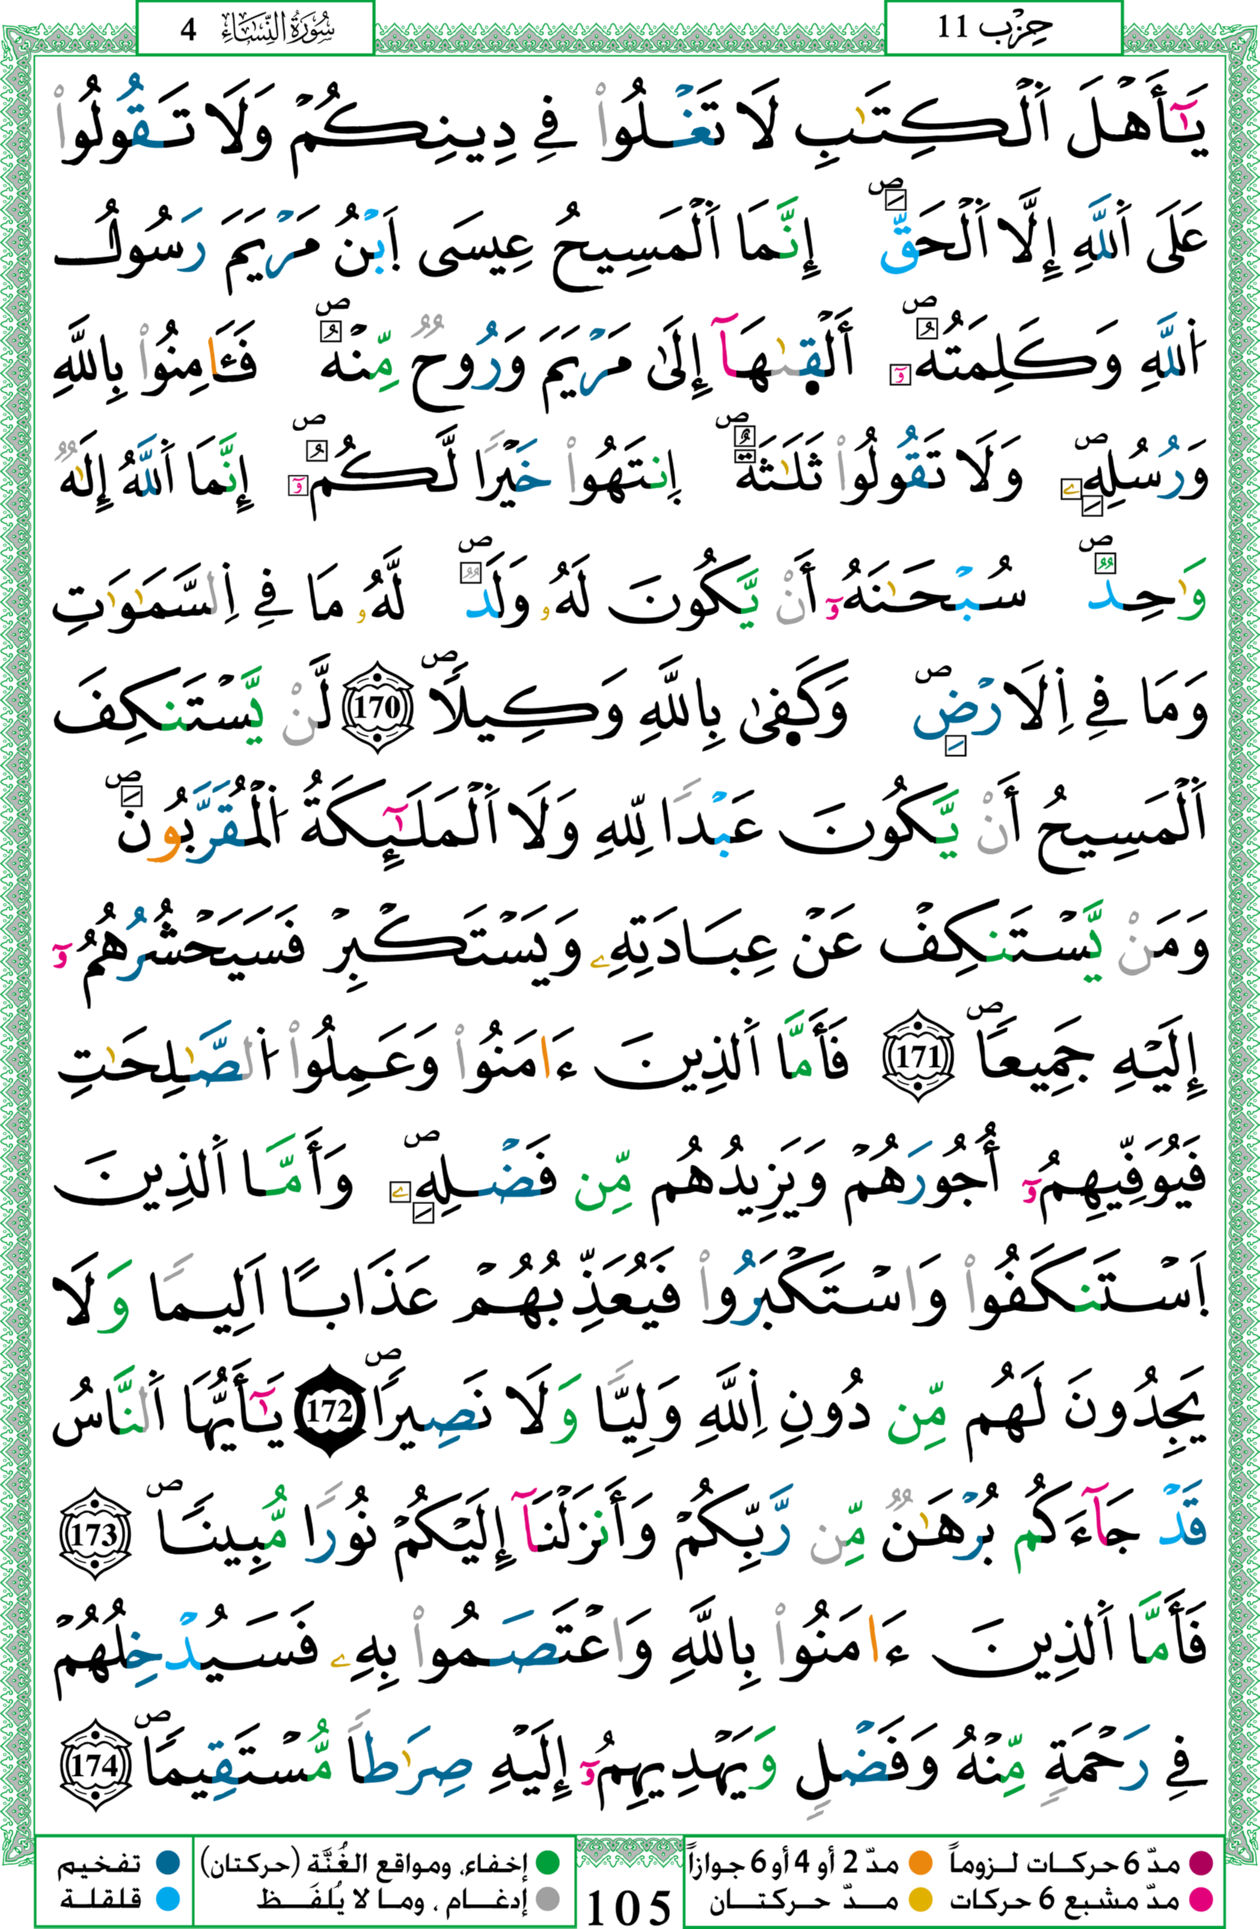 حِزْب 11
سُورَةُ النِّسَاءِ 4
يَٰٓأَهْلَ اَ۬لْكِتَٰبِ لَا تَغْلُواْ فِے دِينِكُمْ وَلَا تَقُولُواْ
عَلَى اَ۬للَّهِ إِلَّا اَ۬لْحَقَّۖ إِنَّمَا اَ۬لْمَسِيحُ عِيسَى اَ۪بْنُ مَرْيَمَ رَسُولُ
اُ۬للَّهِ وَكَلِمَتُهُۥٓۖ أَلْق۪ىٰهَآ إِلَىٰ مَرْيَمَ وَرُوحٞ مِّنْهُۖ فَـَٔامِنُواْ بِاللَّهِ
وَرُسُلِهِۦۖ وَلَا تَقُولُواْ ثَلَٰثَةٌۖ اِ۪نتَهُواْ خَيْراٗ لَّكُمُۥٓۖ إِنَّمَا اَ۬للَّهُ إِلَٰهٞ
وَٰحِدٞۖ سُبْحَٰنَهُۥٓ أَنْ يَّكُونَ لَهُۥ وَلَدٞۖ لَّهُۥ مَا فِے اِ۬لسَّمَٰوَٰتِ
وَمَا فِے اِ۬لَارْضِۖ وَكَف۪ىٰ بِاللَّهِ وَكِيلاٗۖ 170 لَّنْ يَّسْتَنكِفَ
اَ۬لْمَسِيحُ أَنْ يَّكُونَ عَبْداٗ لِّلهِ وَلَا اَ۬لْمَلَٰٓئِكَةُ اُ۬لْمُقَرَّبُونَۖ
وَمَنْ يَّسْتَنكِفْ عَنْ عِبَادَتِهِۦ وَيَسْتَكْبِرْ فَسَيَحْشُرُهُمُۥٓ
إِلَيْهِ جَمِيعاٗۖ 171 فَأَمَّا اَ۬لذِينَ ءَامَنُواْ وَعَمِلُواْ اُ۬لصَّٰلِحَٰتِ
فَيُوَفِّيهِمُۥٓ أُجُورَهُمْ وَيَزِيدُهُم مِّن فَضْلِهِۦۖ وَأَمَّا اَ۬لذِينَ
اَ۪سْتَنكَفُواْ وَاسْتَكْبَرُواْ فَيُعَذِّبُهُمْ عَذَاباً اَلِيماٗ وَلَا
يَجِدُونَ لَهُم مِّن دُونِ اِ۬للَّهِ وَلِيّاٗ وَلَا نَصِيراٗۖ 172 يَٰٓأَيُّهَا اَ۬لنَّاسُ
قَدْ جَآءَكُم بُرْهَٰنٞ مِّن رَّبِّكُمْ وَأَنزَلْنَآ إِلَيْكُمْ نُوراٗ مُّبِيناٗۖ 173
فَأَمَّا اَ۬لذِينَ ءَامَنُواْ بِاللَّهِ وَاعْتَصَمُواْ بِهِۦ فَسَيُدْخِلُهُمْ
فِے رَحْمَةٖ مِّنْهُ وَفَضْلٖ وَيَهْدِيهِمُۥٓ إِلَيْهِ صِرَٰطاٗ مُّسْتَقِيماٗۖ 174
مدّ 6 حركات لـزوماً مدّ 2 أو 4 أو 6 جوازاً
مدّ مشبع 6 حركات مـدّ حركتـان
105
إخفاء، ومواقع الغُنَّة (حركتان) تفخيم
إدغام ، وما لا يُلفَـظ قلقلة